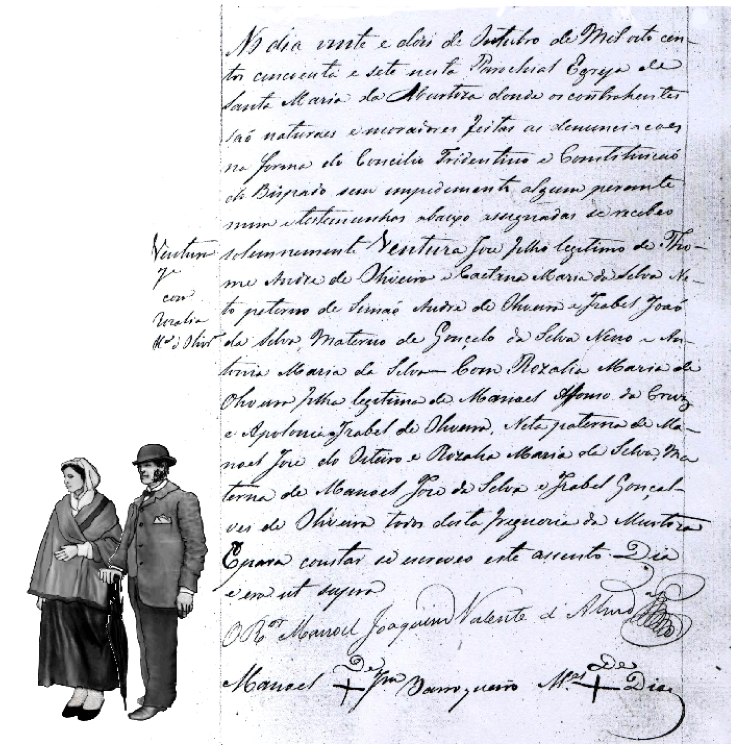 No dia vinte e dois de Outubro de Mil oito cen-
tos cincuenta e sete nesta Parochial Egreja de
Santa Maria da Murtoza donde os contrahentes
saõ naturaes e moradores feitas as denunciacoes
na forma do Concilio Tridentino e Constituicaõ
do Bispado sem impedimento algum perante
mim e testemunhas abaixo assignadas se recebeo
solemnemente Ventura Joze filho legitimo de Tho-
me Andre de Oliveira e Caetana Maria da Silva Ne-
to paterno de Simaõ Andre de Oliveira e Izabel Joaõ
da Silva, Materno de Gonçalo da Silva Neno e An-
tonia Maria da Silva — Com Rozalia Maria de
Oliveira filha legitima de Manoel Afonso da Cruz
e Apolonia Izabel de Oliveira, Neta paterna de Ma-
noel Joze do Outeiro e Rozalia Maria da Silva, Ma
terna de Manoel Joze da Silva e Izabel Gonçal-
ves de Oliveira todos desta freguezia da Murtoza
E para constar se escreveo este assento. Dia
e era ut supra
O Ror Manoel Joaquim Valente d'
Manoel De + Barroqueiro De + Dias
Ventura
Je
com
Rozalia
Ma d'Olivra